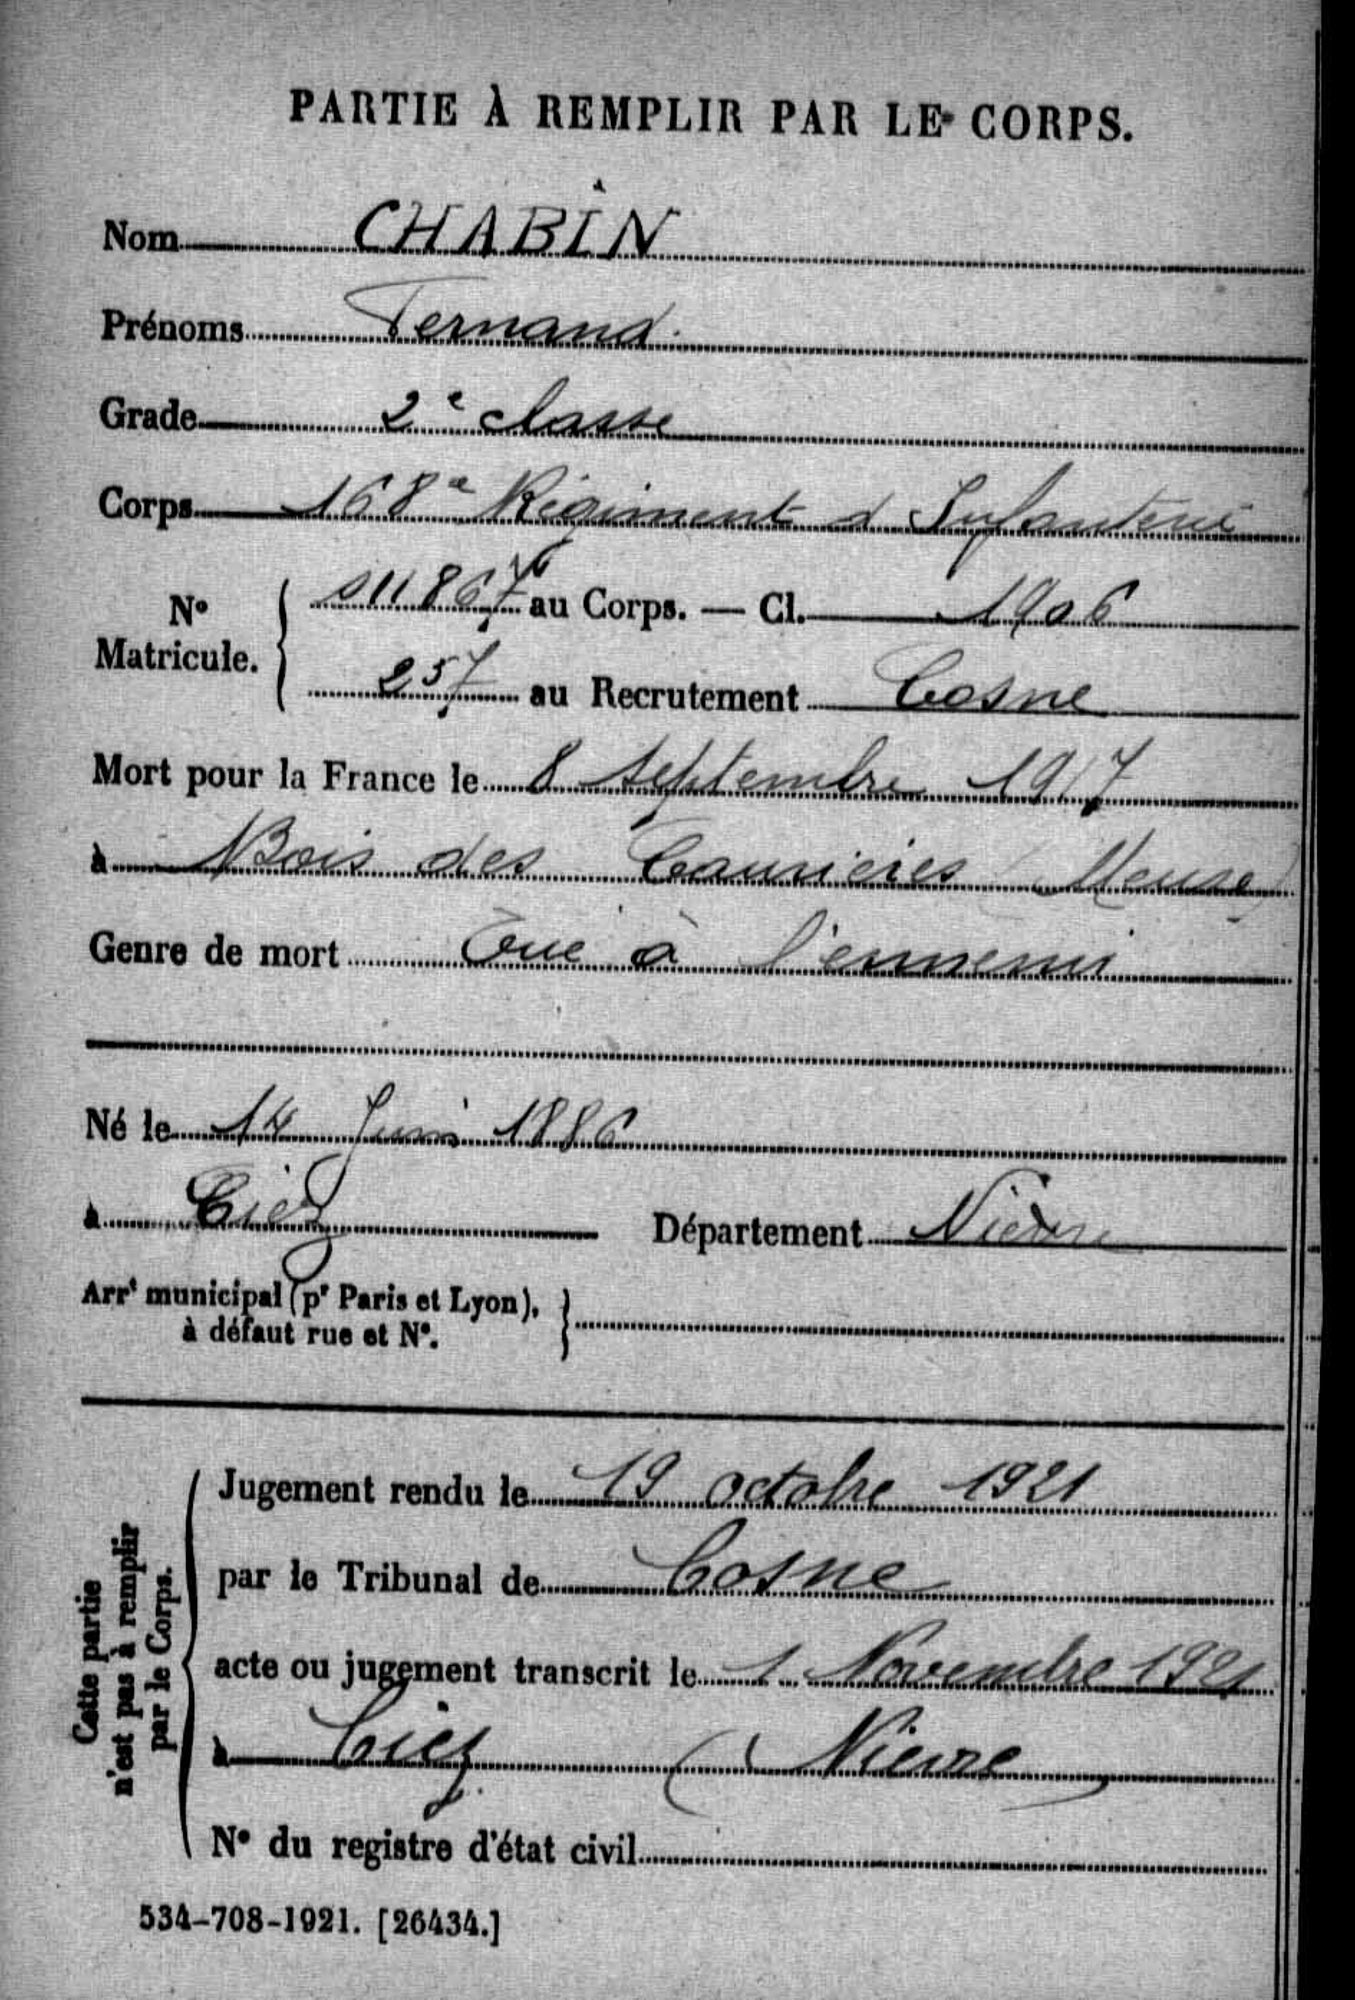 PARTIE À REMPLIR PAR LE CORPS.
Nom CHABIN
Prénoms Fernand
Grade 2e classe
Corps 168e Régiment d Infanterie
No Matricule. { 011867 au Corps. — Cl. 1906
257 au Recrutement Cosne
Mort pour la France le 8 septembre 1917
à Bois des Caurières (Meuse)
Genre de mort Tué à l'ennemi
Né le 14 Juin 1886
à Ciez Département Nièvre
Arrt municipal (pr Paris et Lyon), }
à défaut rue et No.
Cette partie
n'est pas à remplir
par le Corps.
Jugement rendu le 19 octobre 1921
par le Tribunal de Cosne
acte ou jugement transcrit le 1 Novembre 1921
à Ciez (Nievre)
No du registre d'état civil
534-708-1921. [26434.]